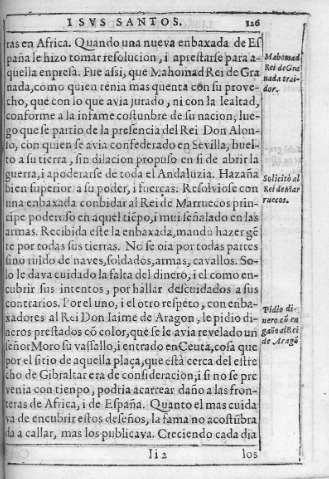 I SVS SANTOS. 126
ras en Africa. Quando una nueva enbaxada de Es
paña le hizo tomar resolucion, i aprestarse para a-
quella enpresa. Fue assi, que Mahomad Rei de Gra
nada, como quien tenia mas quenta con su prove-
cho, que con lo que avia jurado, ni con la lealtad,
conforme a la infame costunbre de su nacion; lue-
go que se partio de la presencia del Rei Don Alon-
so, con quien se avia confederado en Sevilla, buel-
to a su tierra, sin dilacion propuso en si de abrir la
guerra, i apoderarse de toda el Andaluzia. Hazaña
bien superior a su poder, i fuerças. Resolviose con
una enbaxada conbidar al Rei de Marruecos prin-
cipe poderoso en aquel tiẽpo, i mui señalado en las
armas. Recibida este la enbaxada, mandò hazer gẽ
te por todas sus tierras. No se oia por todas partes
sino ruido de naves, soldados, armas, cavallos. So-
lo le dava cuidado la falta del dinero, i el como en-
cubrir sus intentos, por hallar descuidados a sus
contrarios. Por el uno, i el otro respeto, con enba-
xadores al Rei Don Iaime de Aragon, le pidio di-
neros prestados cõ color, que se le avia revelado un
señor Moro su vassallo, i entrado en Ceuta, cosa que
por el sitio de aquella plaça, que està cerca del estre
cho de Gibraltar era de consideracion; i si no se pre
venia con tiempo, podria acarrear daño a las fron-
teras de Africa, i de España. Quanto el mas cuida
va de encubrir estos deseños, la fama no acostũbra
da a callar, mas los publicava. Creciendo cada dia
Ii 2 los
Mahomad
Rei de Gra
nada trai-
dor.
Solicitò al
Rei de Mar
ruecos.
Pidio di-
nero cõ en
gaño al Rei
de Aragõ